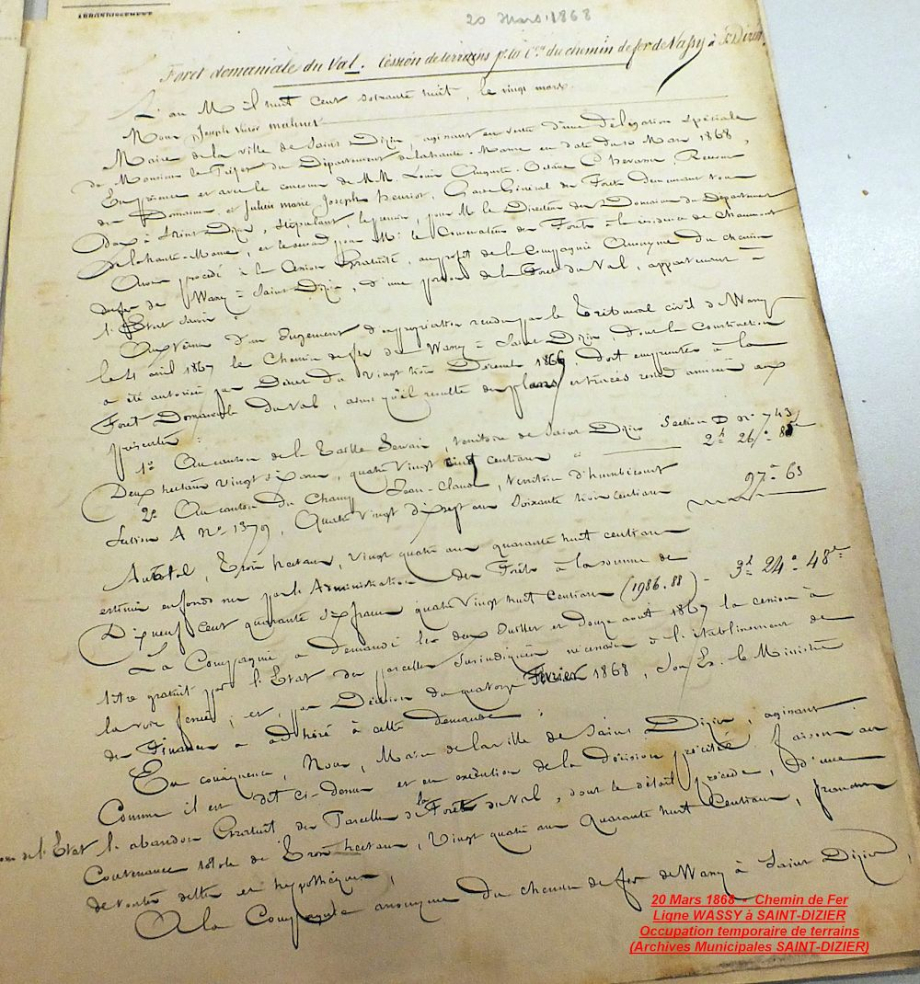 ARRONDISSEMENT
20 Mars 1868
Forêt domaniale du Val. Cession de terrains p. la Cie du chemin de fer de Vassy à St Dizier.
L'an Mil huit Cent soixante huit, le vingt mars
Nous Joseph Victor Mahuet
Maire de la ville de Saint Dizier, agissant en vertu d'une Délégation spéciale
de Monsieur le Préfet du Département de la haute-Marne en date du 10 Mars 1868,
En présence et avec le concours de M.M. Louis Auguste Chevance Receveur
des Domaines et Julien Marie Joseph Henriot, Garde Général des Forêts demeurant tous
deux à Saint-Dizier, stipulant, le premier, pour M. le Directeur des Domaines du Département
de la haute-Marne, et le second pour Mr. le Conservateur des Forêts à la résidence de Chaumont
Avons procédé à la Cession Gratuite, au profit de la Compagnie Anonyme du chemin
de fer de Wassy = Saint-Dizier, d'une portion de la Forêt du Val, appartenant =
l'Etat Savoir :
Aux termes d'un Jugement d'expropriation rendu par le Tribunal civil de Wassy
le 4 avril 1867 le Chemin de fer de Wassy = Saint-Dizier, dont la Construction
a été autorisée par Décret du Vingt trois Décembre 1866, doit emprunter à la
Forêt Domaniale du Val, ainsi qu'il résulte des plans et tracés annexés aux
présentes :
1° Au canton de la Taille Servais, territoire de Saint Dizier Section D n° 743
Deux hectares vingt six ares, quatre Vingt cinq centiares 2h 26a 85c
2° Au canton du Champ Jean-Claude, territoire d'humbécourt
Section A No. 1379, Quatre Vingt dix sept ares Soixante trois centiares 97a 63
Au total, Trois hectares, Vingt quatre ares quarante huit centiares
estimés en fonds par l'Administration des Forêts à la somme de 3h 24a 48c
Dix neuf cent quatre vingt six francs quatre Vingt huit Centimes (1986.88) -
La Compagnie a demandé les deux Juillet et Douze août 1867 la cession à
titre gratuit par l'Etat des parcelles Susindiquées nécessaires à l'établissement de
la voie ferrée, et par Décision du quatorze Février 1868, Son Ex. le Ministre
des Finances a adhéré à cette demande :
En conséquence, Nous, Maire de la ville de Saint Dizier, agissant
Comme il est dit ci-dessus et en exécution de la décision précitée, faisons au
nom de l'Etat l'abandon Gratuit des Parcelles de la Forêt du Val, dont le détail précède, d'une
Contenance totale de Trois hectares, Vingt quatre ares Quarante huit Centiares, franches
de toutes dettes et hypothèques,
A la Compagnie anonyme du chemin de fer de Wassy à Saint Dizier,
20 Mars 1868 - Chemin de Fer
Ligne WASSY à SAINT-DIZIER
Occupation temporaire de terrains
(Archives Municipales SAINT-DIZIER)